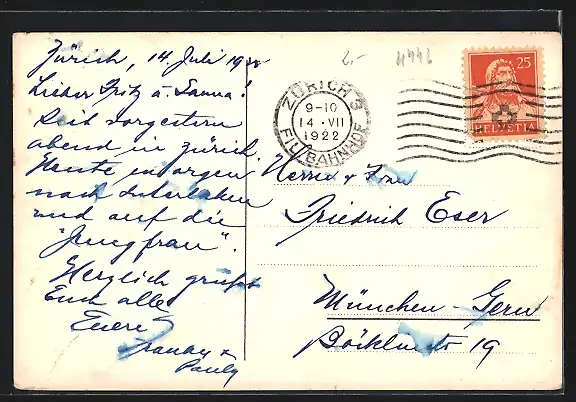 Zürich, 14. Juli 1922
Lieber Fritz u. Sanna!
Seit vorgestern
abend in Zürich.
Heute morgen
nach Interlaken
und auf die
"Jungfrau".
Herzlich grüßt
Euch alle
Euere
Franky &
Pauly
2.-
ZÜRICH 3
9-10
14.VII
1922
FIL. BAHNHOF
25
HELVETIA
Herrn & Frau
Friedrich Eser
München-Gern
Böcklinstr 19